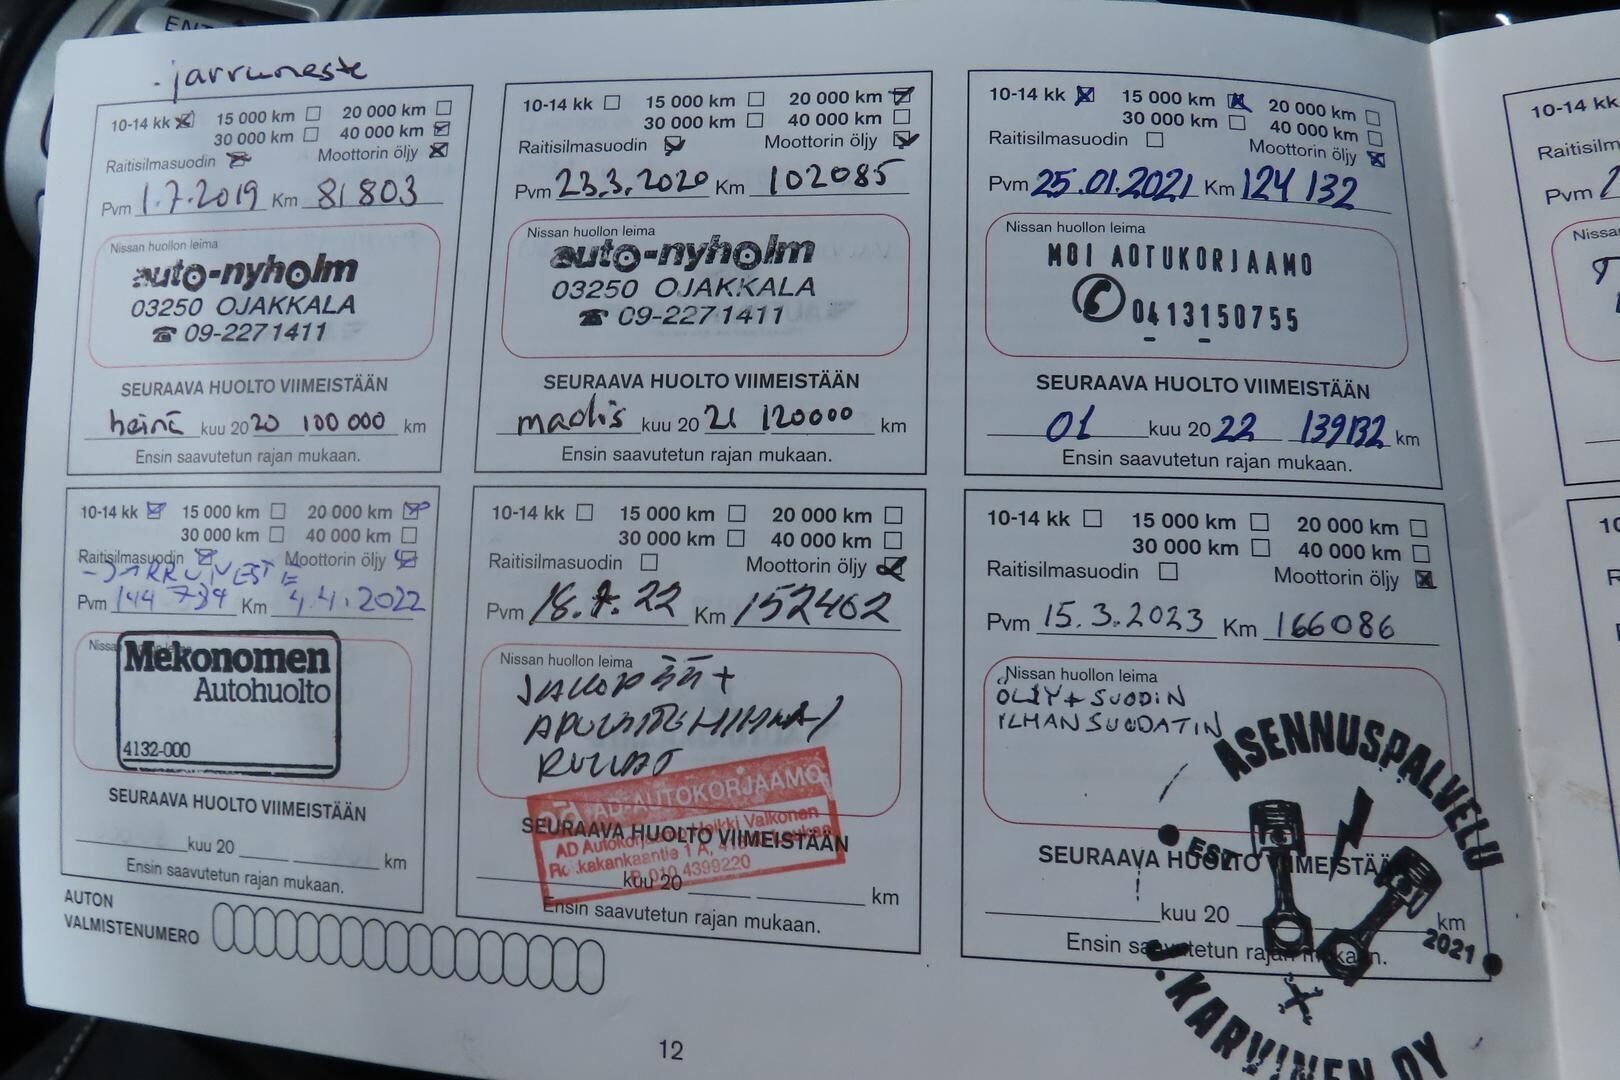 ENT
- jarruneste
10-14 kk 15 000 km 20 000 km
30 000 km 40 000 km
Raitisilmasuodin Moottorin öljy
Pvm 1.7.2019 Km 81803
Nissan huollon leima
auto-nyholm
03250 OJAKKALA
☎ 09-2271411
SEURAAVA HUOLTO VIIMEISTÄÄN
heinä kuu 2020 100 000 km
Ensin saavutetun rajan mukaan.
10-14 kk 15 000 km 20 000 km
30 000 km 40 000 km
Raitisilmasuodin Moottorin öljy
Pvm 23.3.2020 Km 102085
Nissan huollon leima
auto-nyholm
03250 OJAKKALA
☎ 09-2271411
SEURAAVA HUOLTO VIIMEISTÄÄN
maalis kuu 2021 120000 km
Ensin saavutetun rajan mukaan.
10-14 kk 15 000 km 20 000 km
30 000 km 40 000 km
Raitisilmasuodin Moottorin öljy
Pvm 25.01.2021 Km 124 132
Nissan huollon leima
MOI AOTUKORJAAMO
0413150755
SEURAAVA HUOLTO VIIMEISTÄÄN
01 kuu 2022 139132 km
Ensin saavutetun rajan mukaan.
10-14 kk 15 000 km 20 000 km
30 000 km 40 000 km
Raitisilmasuodin Moottorin öljy
JARRUNESTE
Pvm 144 734 Km 4.4.2022
Mekonomen
Autohuolto
4132-000
SEURAAVA HUOLTO VIIMEISTÄÄN
kuu 20 km
Ensin saavutetun rajan mukaan.
10-14 kk 15 000 km 20 000 km
30 000 km 40 000 km
Raitisilmasuodin Moottorin öljy
Pvm 18.7.22 Km 152402
Nissan huollon leima
JAKOPÄÄ +
APULAITEHIHNA/
RULLAT
AD-AUTOKORJAAMO
SEURAAVA HUOLTO VIIMEISTÄÄN
Valkonen
010 4399220
kuu 20 km
Ensin saavutetun rajan mukaan.
10-14 kk 15 000 km 20 000 km
30 000 km 40 000 km
Raitisilmasuodin Moottorin öljy
Pvm 15.3.2023 Km 166086
Nissan huollon leima
ÖLJY + SUODIN
ILMANSUODATIN
ASENNUSPALVELU
EST 2021
KARVINEN OY
SEURAAVA HUOLTO VIIMEISTÄÄN
kuu 20 km
Ensin saavutetun rajan mukaan.
AUTON
VALMISTENUMERO
12
10-14 kk
Pvm